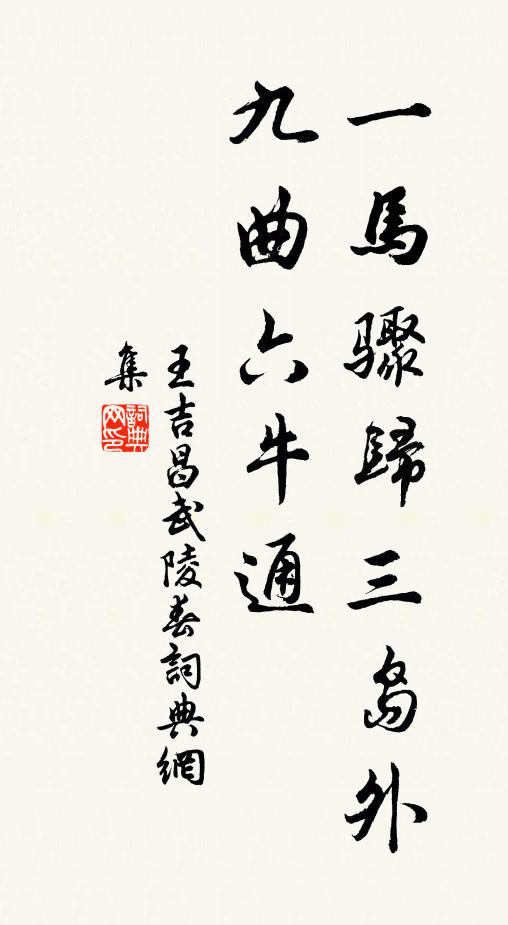 一馬驟歸三島外
九曲六牛通
王吉昌武陵春詞典網
集
詞典網印